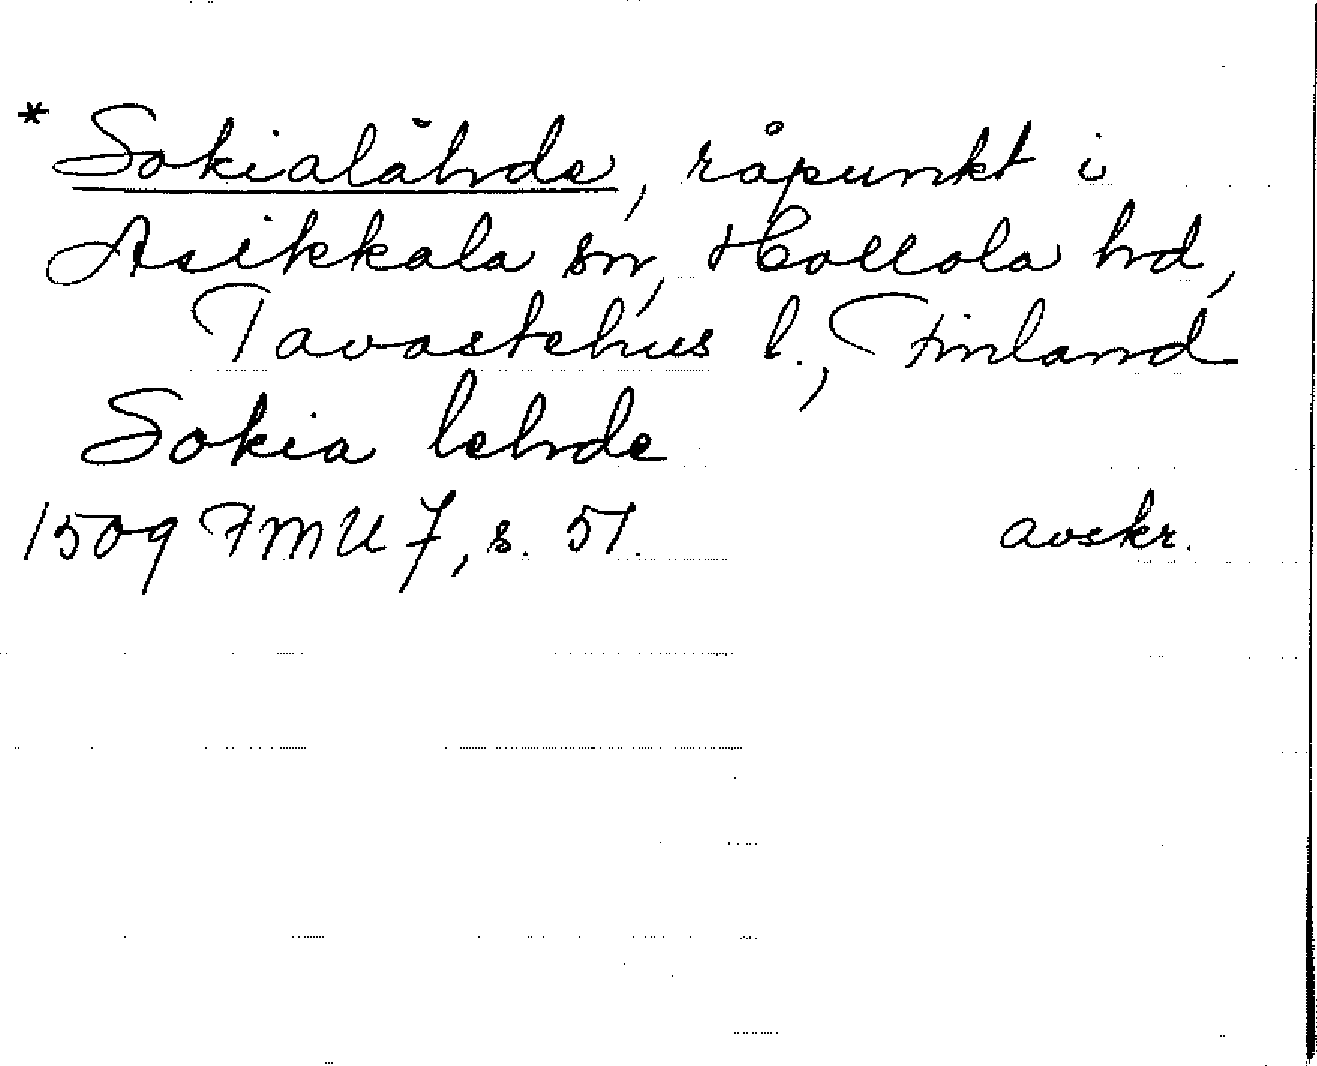 * Sokialähde, råpunkt i
Asikkala sn, Hollola hd,
Tavastehus l., Finland
Sokia lehde
1509 FMU 7, s. 51. avskr.